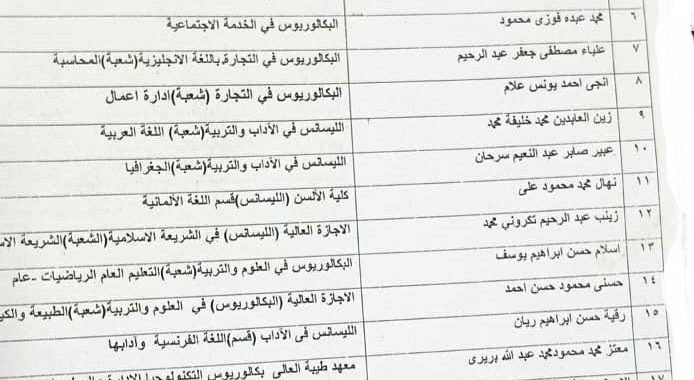 ٦ محمد عبده فوزى محمود البكالوريوس في الخدمة الاجتماعية
٧ علياء مصطفى جعفر عبد الرحيم البكالوريوس في التجارة باللغة الانجليزية(شعبة)المحاسبة
٨ انجى احمد يونس علام البكالوريوس في التجارة (شعبة)ادارة اعمال
٩ زين العابدين محمد خليفة محمد الليسانس في الآداب والتربية(شعبة) اللغة العربية
١٠ عبير صابر عبد النعيم سرحان الليسانس في الآداب والتربية(شعبة)الجغرافيا
١١ نهال محمد محمود على كلية الألسن (الليسانس)قسم اللغة الألمانية
١٢ زينب عبد الرحيم تكروني محمد الاجازة العالية (الليسانس) في الشريعة الاسلامية(الشعبة)الشريعة
١٣ اسلام حسن ابراهيم يوسف البكالوريوس في العلوم والتربية(شعبة)التعليم العام الرياضيات -عام
١٤ حسنى محمود حسن احمد الاجازة العالية (البكالوريوس) في العلوم والتربية(شعبة)الطبيعة
١٥ رقية حسن ابراهيم ريان الليسانس فى الآداب (قسم)اللغة الفرنسية وآدابها
١٦ معتز محمد محمودمحمد عبد الله بريرى معهد طيبة العالى بكالوريوس التكنولوجيا
١٧